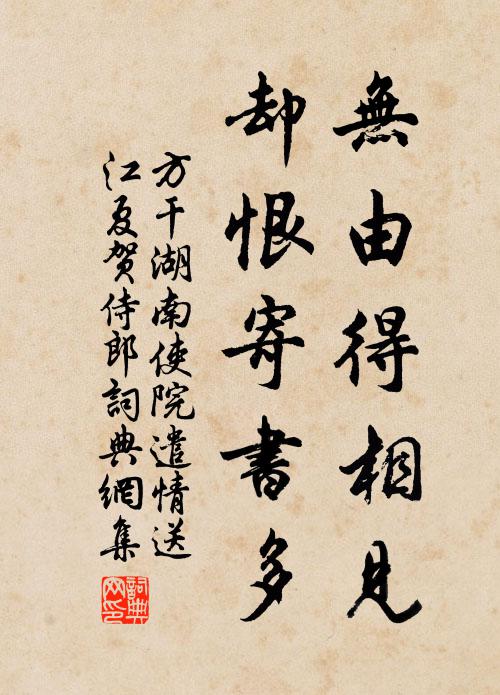 無由得相見
却恨寄書多
方干湖南使院遣情送
江夏贺侍郎詞典網集
詞典
网印